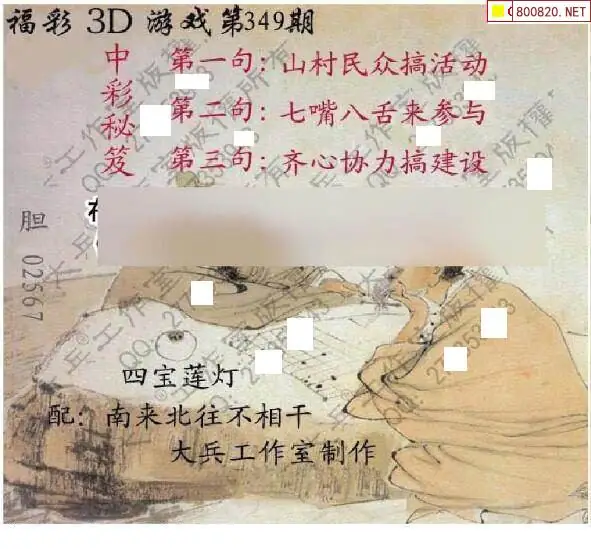 福彩 3D 游戏第349期
800820.NET
中彩秘笈
第一句：山村民众搞活动
第二句：七嘴八舌来参与
第三句：齐心协力搞建设
胆 02567
四宝莲灯
配：南来北往不相干
大兵工作室制作